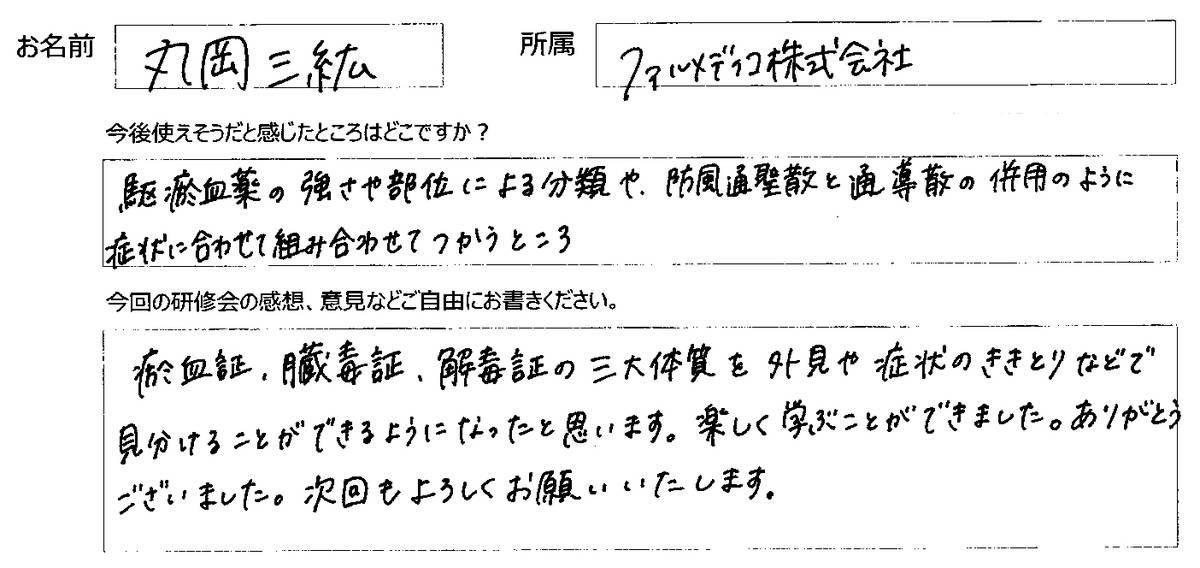 お名前 丸岡三紘 所属 ファルメディコ株式会社
今後使えそうだと感じたところはどこですか？
駆瘀血薬の強さや部位による分類や、防風通聖散と通導散の併用のように
症状に合わせて組み合わせてつかうところ
今回の研修会の感想、意見などご自由にお書きください。
瘀血証、臓毒証、解毒証の三大体質を外見や症状のききとりなどで
見分けることができるようになったと思います。楽しく学ぶことができました。ありがとう
ございました。次回もよろしくお願いいたします。